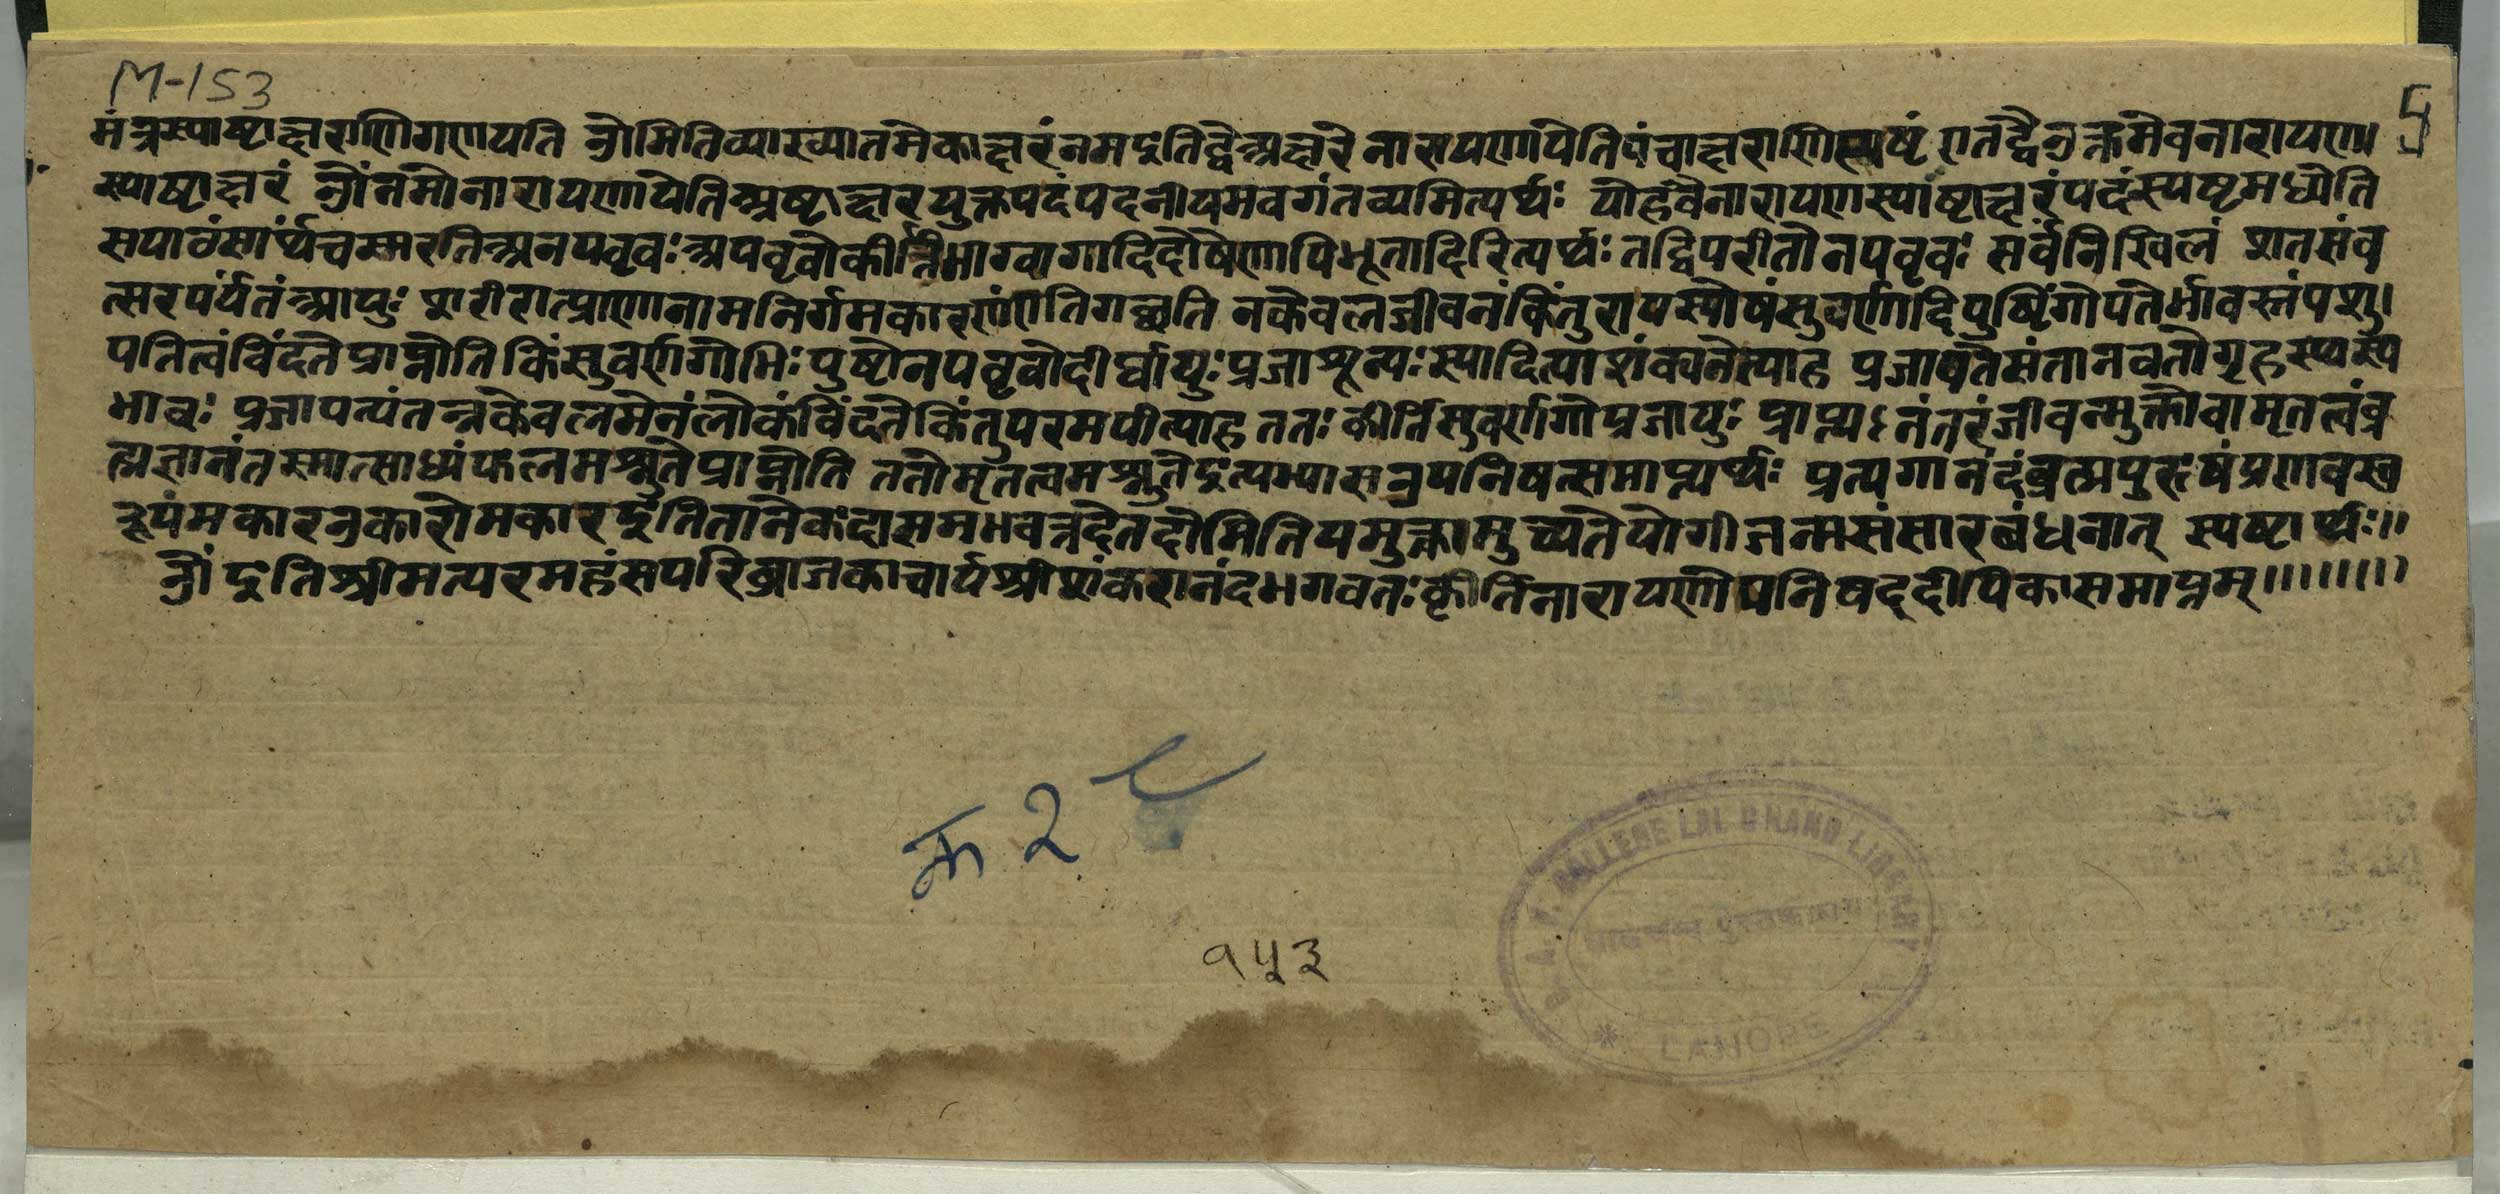 M-153
5
मंत्रस्याष्टाक्षराणि गणयति ओमितिव्याख्यातमेकाक्षरं नमइतिद्वेअक्षरे नारायणायेतिपंचाक्षराणि स्पष्टं एतद्वैउक्तमेवनारायण।
स्याष्टाक्षरं ओंनमोनारायणायेतिअष्टाक्षरयुक्तपदंपदनीयमवगंतव्यमित्यर्थः योहवैनारायणस्याष्टाक्षरंपदंस्पष्टमध्येति
सपाठंसार्थंचस्मरतिअनपब्रुवः अपब्रुवोकीर्तिभाग्वागादिदोषेणापिभूतादिरित्यर्थः तद्विपरीतोनपब्रुवः सर्वंनिखिलं शतसंव
त्सरपर्यंतंआयुः शरीरात्प्राणानामनिर्गमकारणंएतिगच्छति नकेवलजीवनंकिंतुरायस्पोषंसुवर्णादिपुष्टिंगोपतेर्भावस्तंपशु।
पतित्वंविंदतेप्राप्नोति किंसुवर्णगोभिः पुष्टोनपब्रुवोदीर्घायुः प्रजाशून्यः स्यादित्याशंक्यनेत्याह प्रजापतेसंतानवतोगृहस्थस्य
भावः प्रजापत्यंतन्नकेवलमेनंलोकंविंदतेकिंतुपरमपीत्याह ततः कीर्तिसुवर्णगोप्रजायुः प्राप्त्यऽनंतरंजीवन्मुक्तोवामृतत्वंब्र
ह्मज्ञानंतस्मात्साध्यंफलमश्नुतेप्राप्नोति ततोमृतत्वमश्नुतेइत्यभ्यासउपनिषत्समाप्त्यर्थः प्रत्यगानंदंब्रह्मपुरुषंप्रणवस्व
रूपंमकारउकारोमकारइतितानेकदासमभवत्तदेतदोमितियमुक्त्वामुच्यतेयोगीजन्मसंसारबंधनात् स्पष्टार्थः॥
ओं इतिश्रीमत्परमहंसपरिव्राजकाचार्यश्रीशंकरानंदभगवतःकृतिर्नारायणोपनिषद्दीपिकासमाप्तम्॥॥॥॥
क २
१५३
D. A. V. COLLEGE LAL CHAND LIBRARY
लालचन्द पुस्तकालय
* LAHORE *